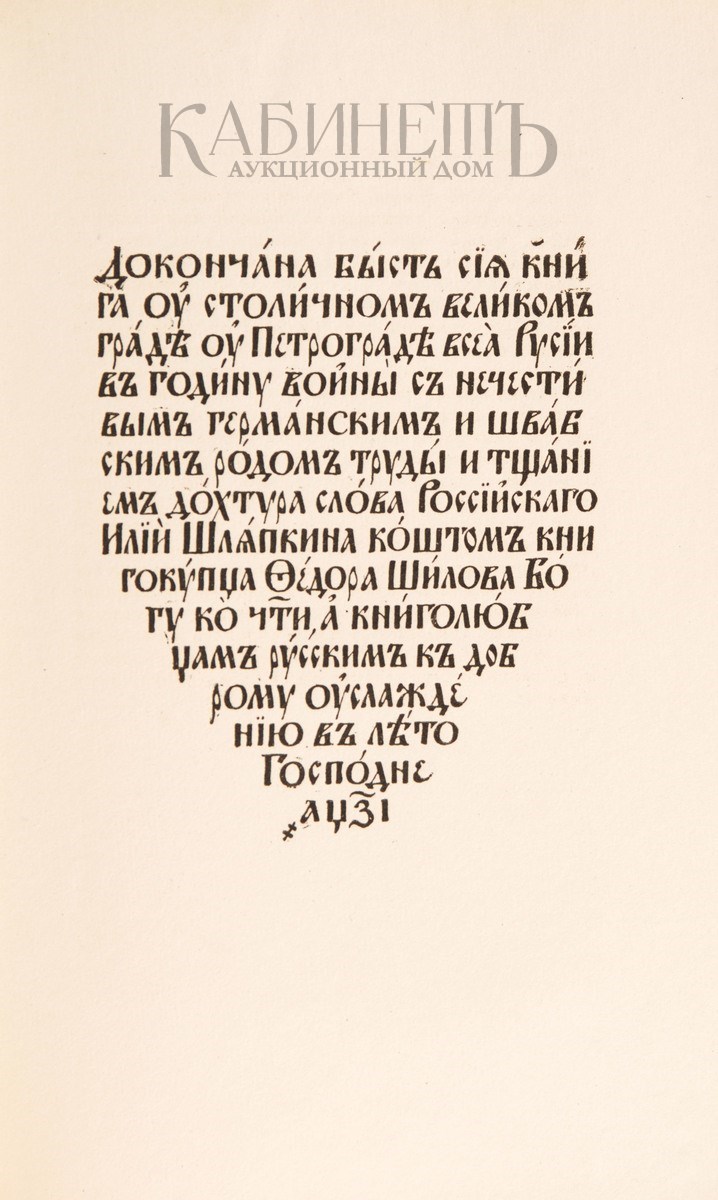 КАБИНЕТЪ
АУКЦИОННЫЙ ДОМ
Докончáна бы́сть сїѧ кни́
га̀ оу̓ столи́чномъ вели́комъ
гра́дѣ оу̓ Петрогра́дѣ всеа̀ Русі́и
въ годи́ну войны̀ съ нечести́
вымъ герма́нскимъ и шва́б
скимъ ро́домъ труды̀ и тщанї
емъ до́хтура сло́ва Россїйскаго
Илїй Шлѧ́пкина ко́штомъ кни
гоку́пца Ѳе́дора Ши́лова Бо́
гу ко̀ чт҃и, а̓ кни́голю́б
цамъ ру́сскимъ къ доб
рому оу̓слажде́
нїю въ лѣ́то
Госпо́дне
҂ацз҃і